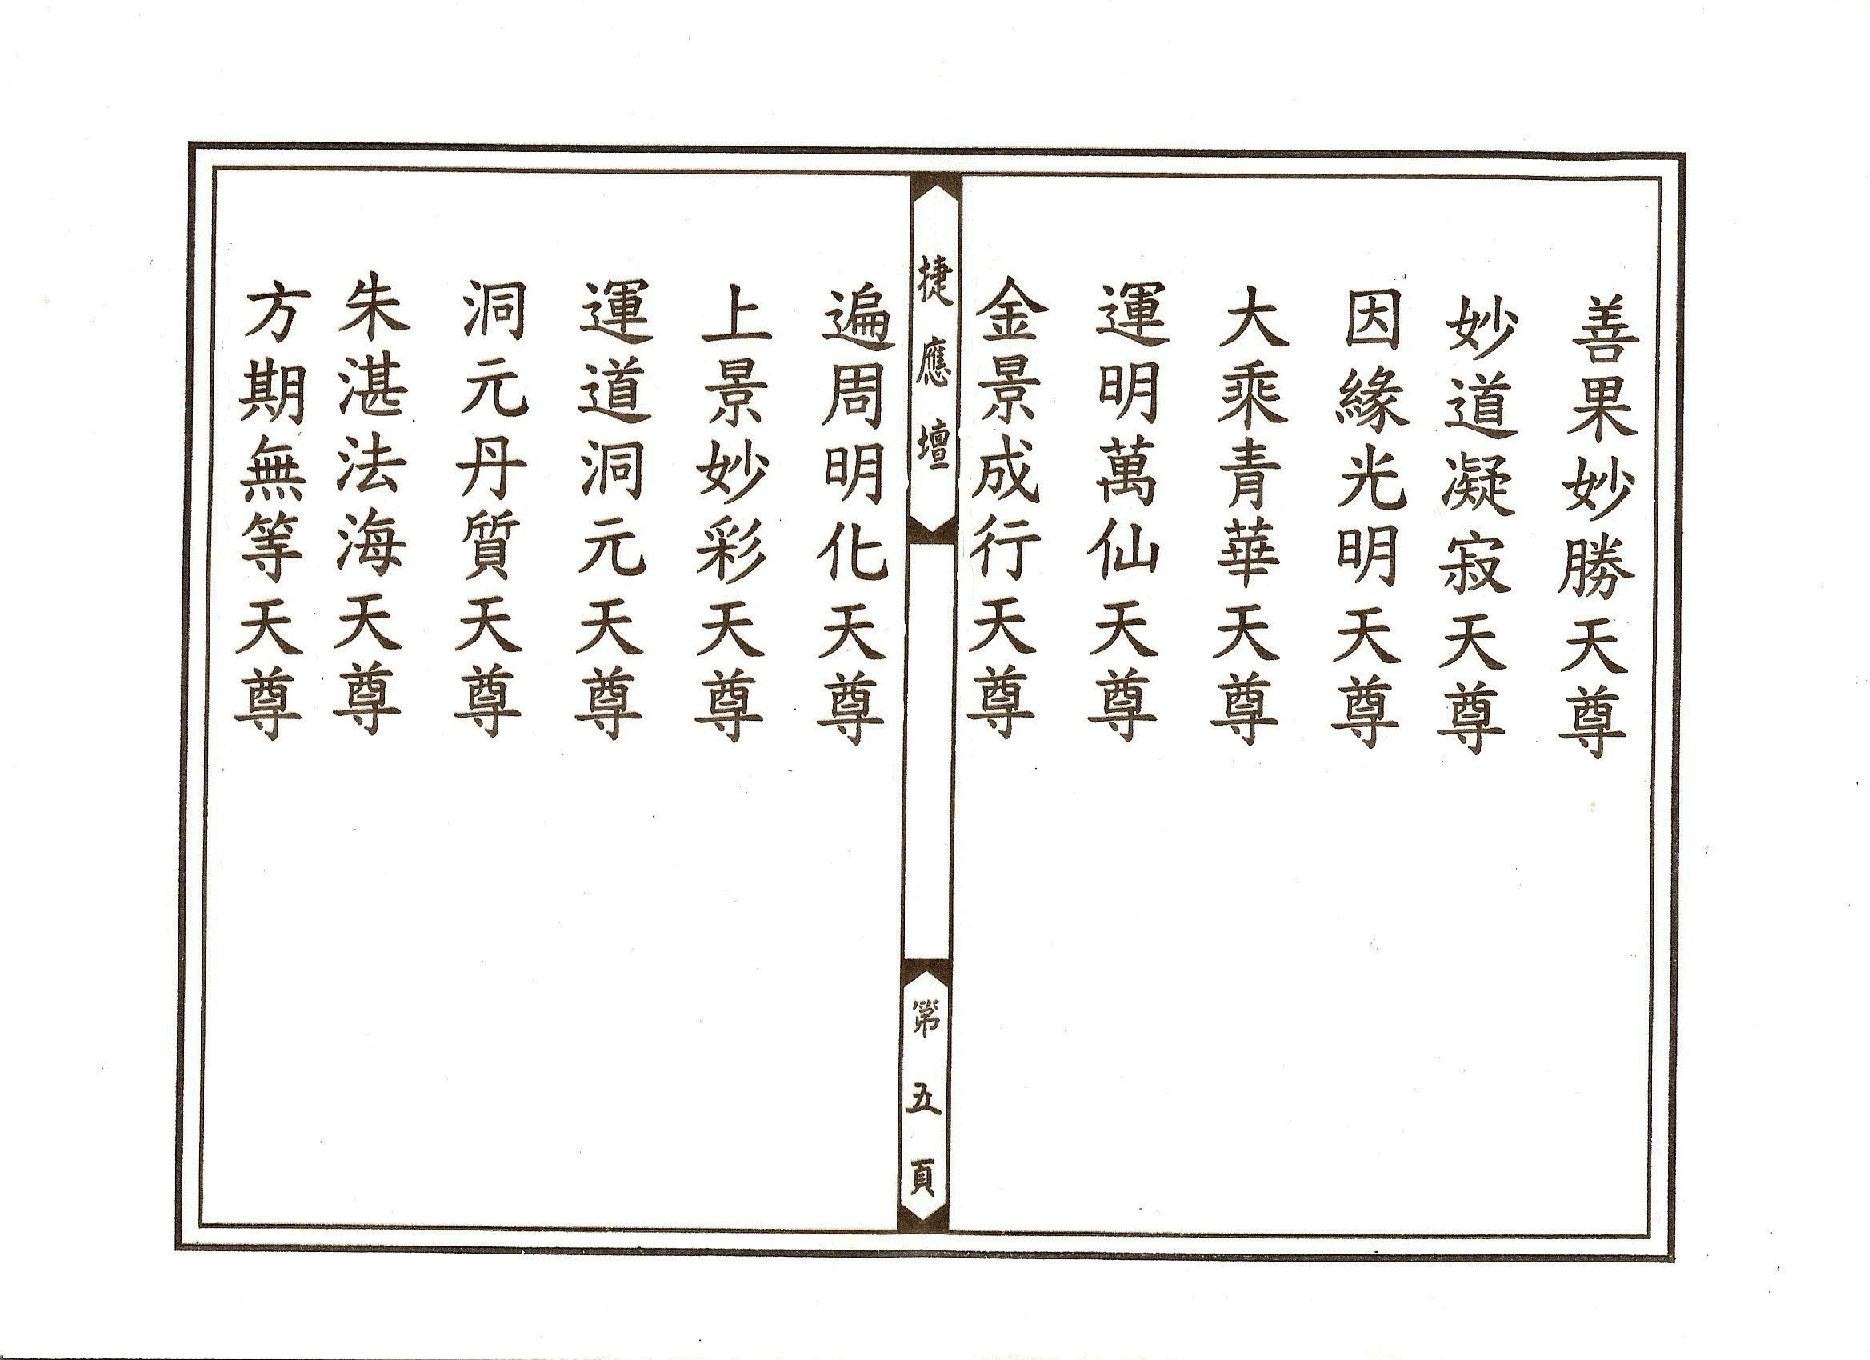 善果妙勝天尊
妙道凝寂天尊
因緣光明天尊
大乘青華天尊
運明萬仙天尊
金景成行天尊
捷應壇
第五頁
遍周明化天尊
上景妙彩天尊
運道洞元天尊
洞元丹質天尊
朱湛法海天尊
方期無等天尊